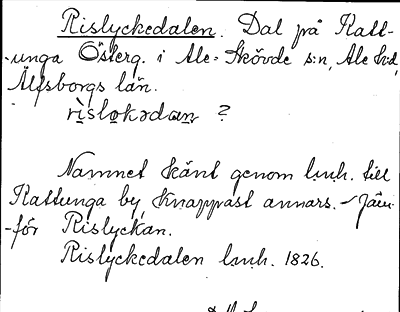 Rislyckedalen. Dal på Katt-
-unga Österg. i Ale-Skövde s:n, Ale h:d,
Älfsborgs län.
rìslo̲kədα̲n ?
Namnet känt genom lmh. till
Kattunga by, knappast annars. - Jäm-
-för Rislyckan.
Rislyckedalen lmh. 1826.